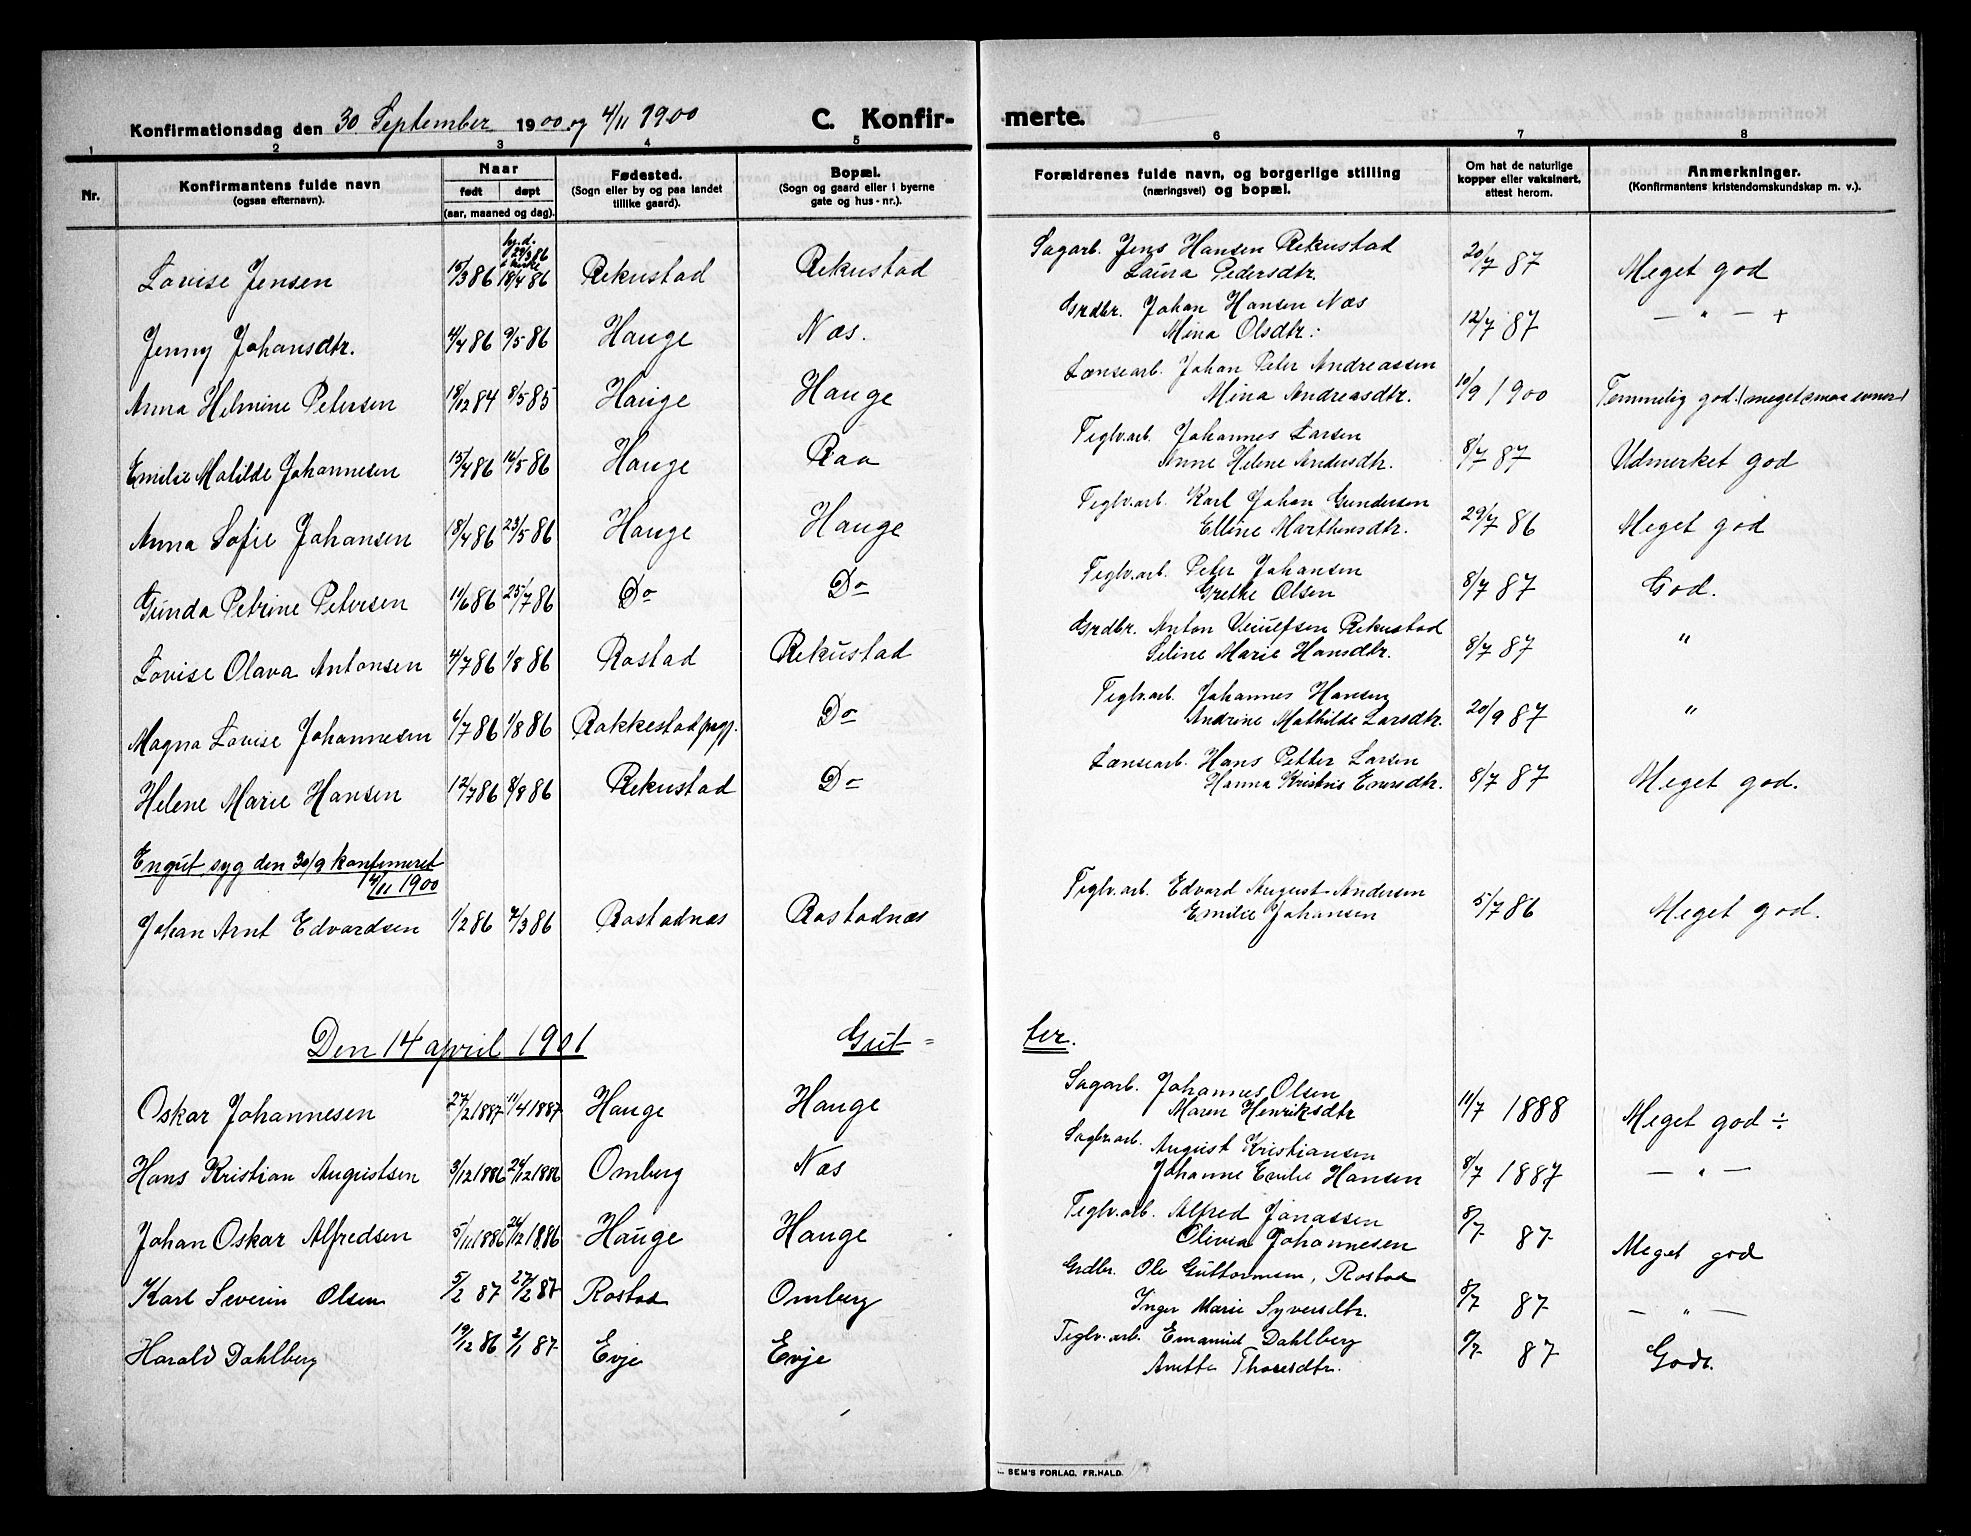 Konfirmationsdag den 30 September 1900 og 4/11 1900 C. Konfir-merte.
1 2 3 4 5 6 7 8
Nr. Konfirmantens fulde navn (ogsaa efternavn). Naar født døpt (aar, maaned og dag). Fødested. (Sogn eller by og paa landet tillike gaard). Bopæl. (Sogn og gaard eller i byerne gate og hus-nr.). Forældrenes fulde navn, og borgerlige stilling (næringsvei) og bopæl. Om hat de naturlige kopper eller vaksinert, attest herom. Anmerkninger. (Konfirmantens kristendomskundskap m. v.).
hj.d. 29/3 86
Sagarb. Jens Hansen Rekustad
Lovise Jensen 15/3 86 kirke 18/4 86 Rekustad Rekustad Laura Pedersdtr. 20/7 87 Meget god
Grdbr. Johan Hansen Næs
Jenny Johansdtr. 4/4 86 9/5 86 Hauge Næs. Mina Olsdtr: 12/7 87 — " — +
Lænsearb. Johan Peter Andreassen
Anna Helmine Petersen 18/12 84 8/5 85 Hauge Hauge Mina Andreasdtr. 10/9 1900 Temmelig god. (meget smaa evner)
Teglv.arb. Johannes Larsen
Emilie Matilde Johannesen 15/4 86 16/5 86 Hauge Raa Anne Helene Andersdtr. 8/7 87 Udmerket god
Teglv.arb. Karl Johan Gundersen
Anna Sofie Johansen 18/4 86 23/5 86 Hauge Hauge Elline Marthinsdtr. 29/7 86 Meget god
Teglv.arb. Peter Johansen
Gunda Petrine Petersen 11/6 86 25/7 86 Do Do Grethe Olsen 8/7 87 God.
Grdbr. Anton Rekustad
Lovise Olava Antonsen 4/7 86 1/8 86 Rostad Rekustad Seline Marie Hansdtr. 8/7 87 "
Teglv.arb. Johannes Hansen
Magna Lovise Johannesen 6/7 86 1/8 86 Rakkestad prgj. Do Andrine Mathilde Larsdtr. 20/9 87 "
Lænsearb. Hans Petter Larsen
Helene Marie Hansen 12/7 86 8/8 86 Rekustad Do Hanna Kristine Enersdtr. 8/7 87 Meget god.
En gut, syg den 30/9 konfirmeret
4/11 1900
Teglv.arb. Edvard August Andersen
Johan Arnt Edvardsen 1/2 86 7/3 86 Rostadnæs Rostadnæs Emilie Johansen 5/7 86 Meget god.
Den 14 april 1901 Gut = ter.
Sagarb. Johannes Olsen
Oskar Johannesen 27/2 1887 11/4 1887 Hauge Hauge Maren Henriksdtr 11/7 1888 Meget god ÷
Sagbr.arb. August Kristiansen
Hans Kristian Augustsen 3/12 1886 26/12 1886 Omberg Næs Johanne Emilie Hansen 8/7 1887 — " —
Teglv.arb. Alfred Jonassen
Johan Oskar Alfredsen 5/11 1886 26/12 1886 Hauge Hauge Olivia Johannesen 8/7 87 Meget god
Grdbr. Ole Guttormsen, Rostad
Karl Severin Olsen 5/2 87 27/2 87 Rostad Omberg Inger Marie Syversdtr. 8/7 87 — " —
Teglv.arb. Emanuel Dahlberg
Harald Dahlberg 19/12 86 2/1 87 Evje Evje Anette Thoresdtr. 8/7 87 Godt.
SEM'S FORLAG, FR.HALD.